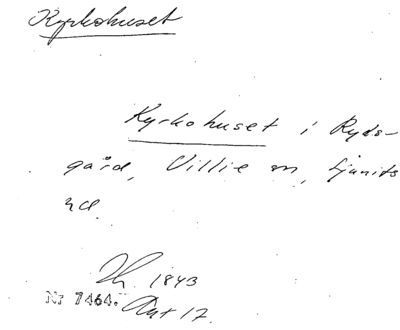 Kyrkohuset
Kyrkohuset i Ryds-
gård, Villie sn, Ljunits
hd.
1843
Nr 7464. Akt 17.